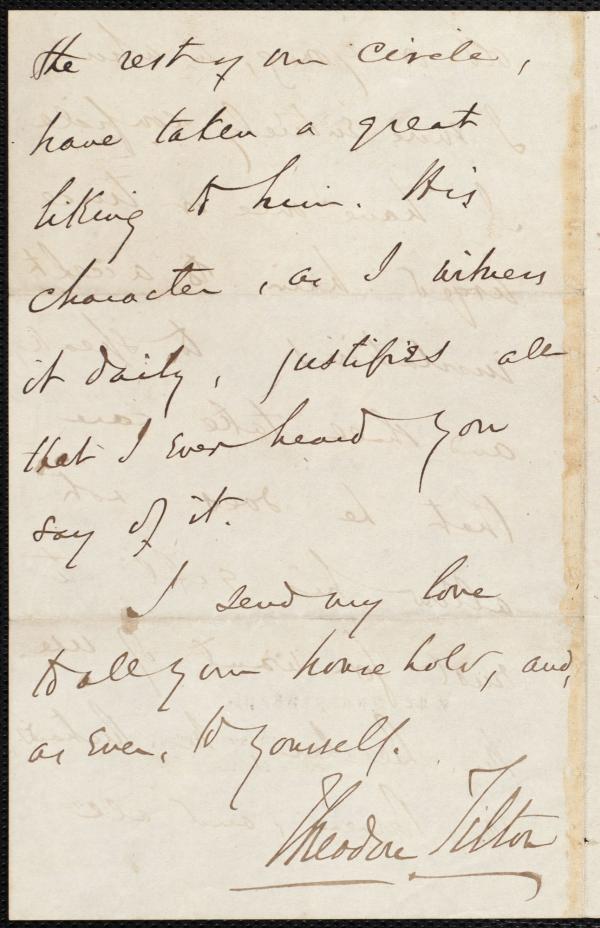 the rest of our circle,
have taken a great
liking to him. His
character, as I witness
it daily, justifies all
that I ever heard you
say of it.
I send my love
to all your household, and,
as ever, to yourself.
Theodore Tilton